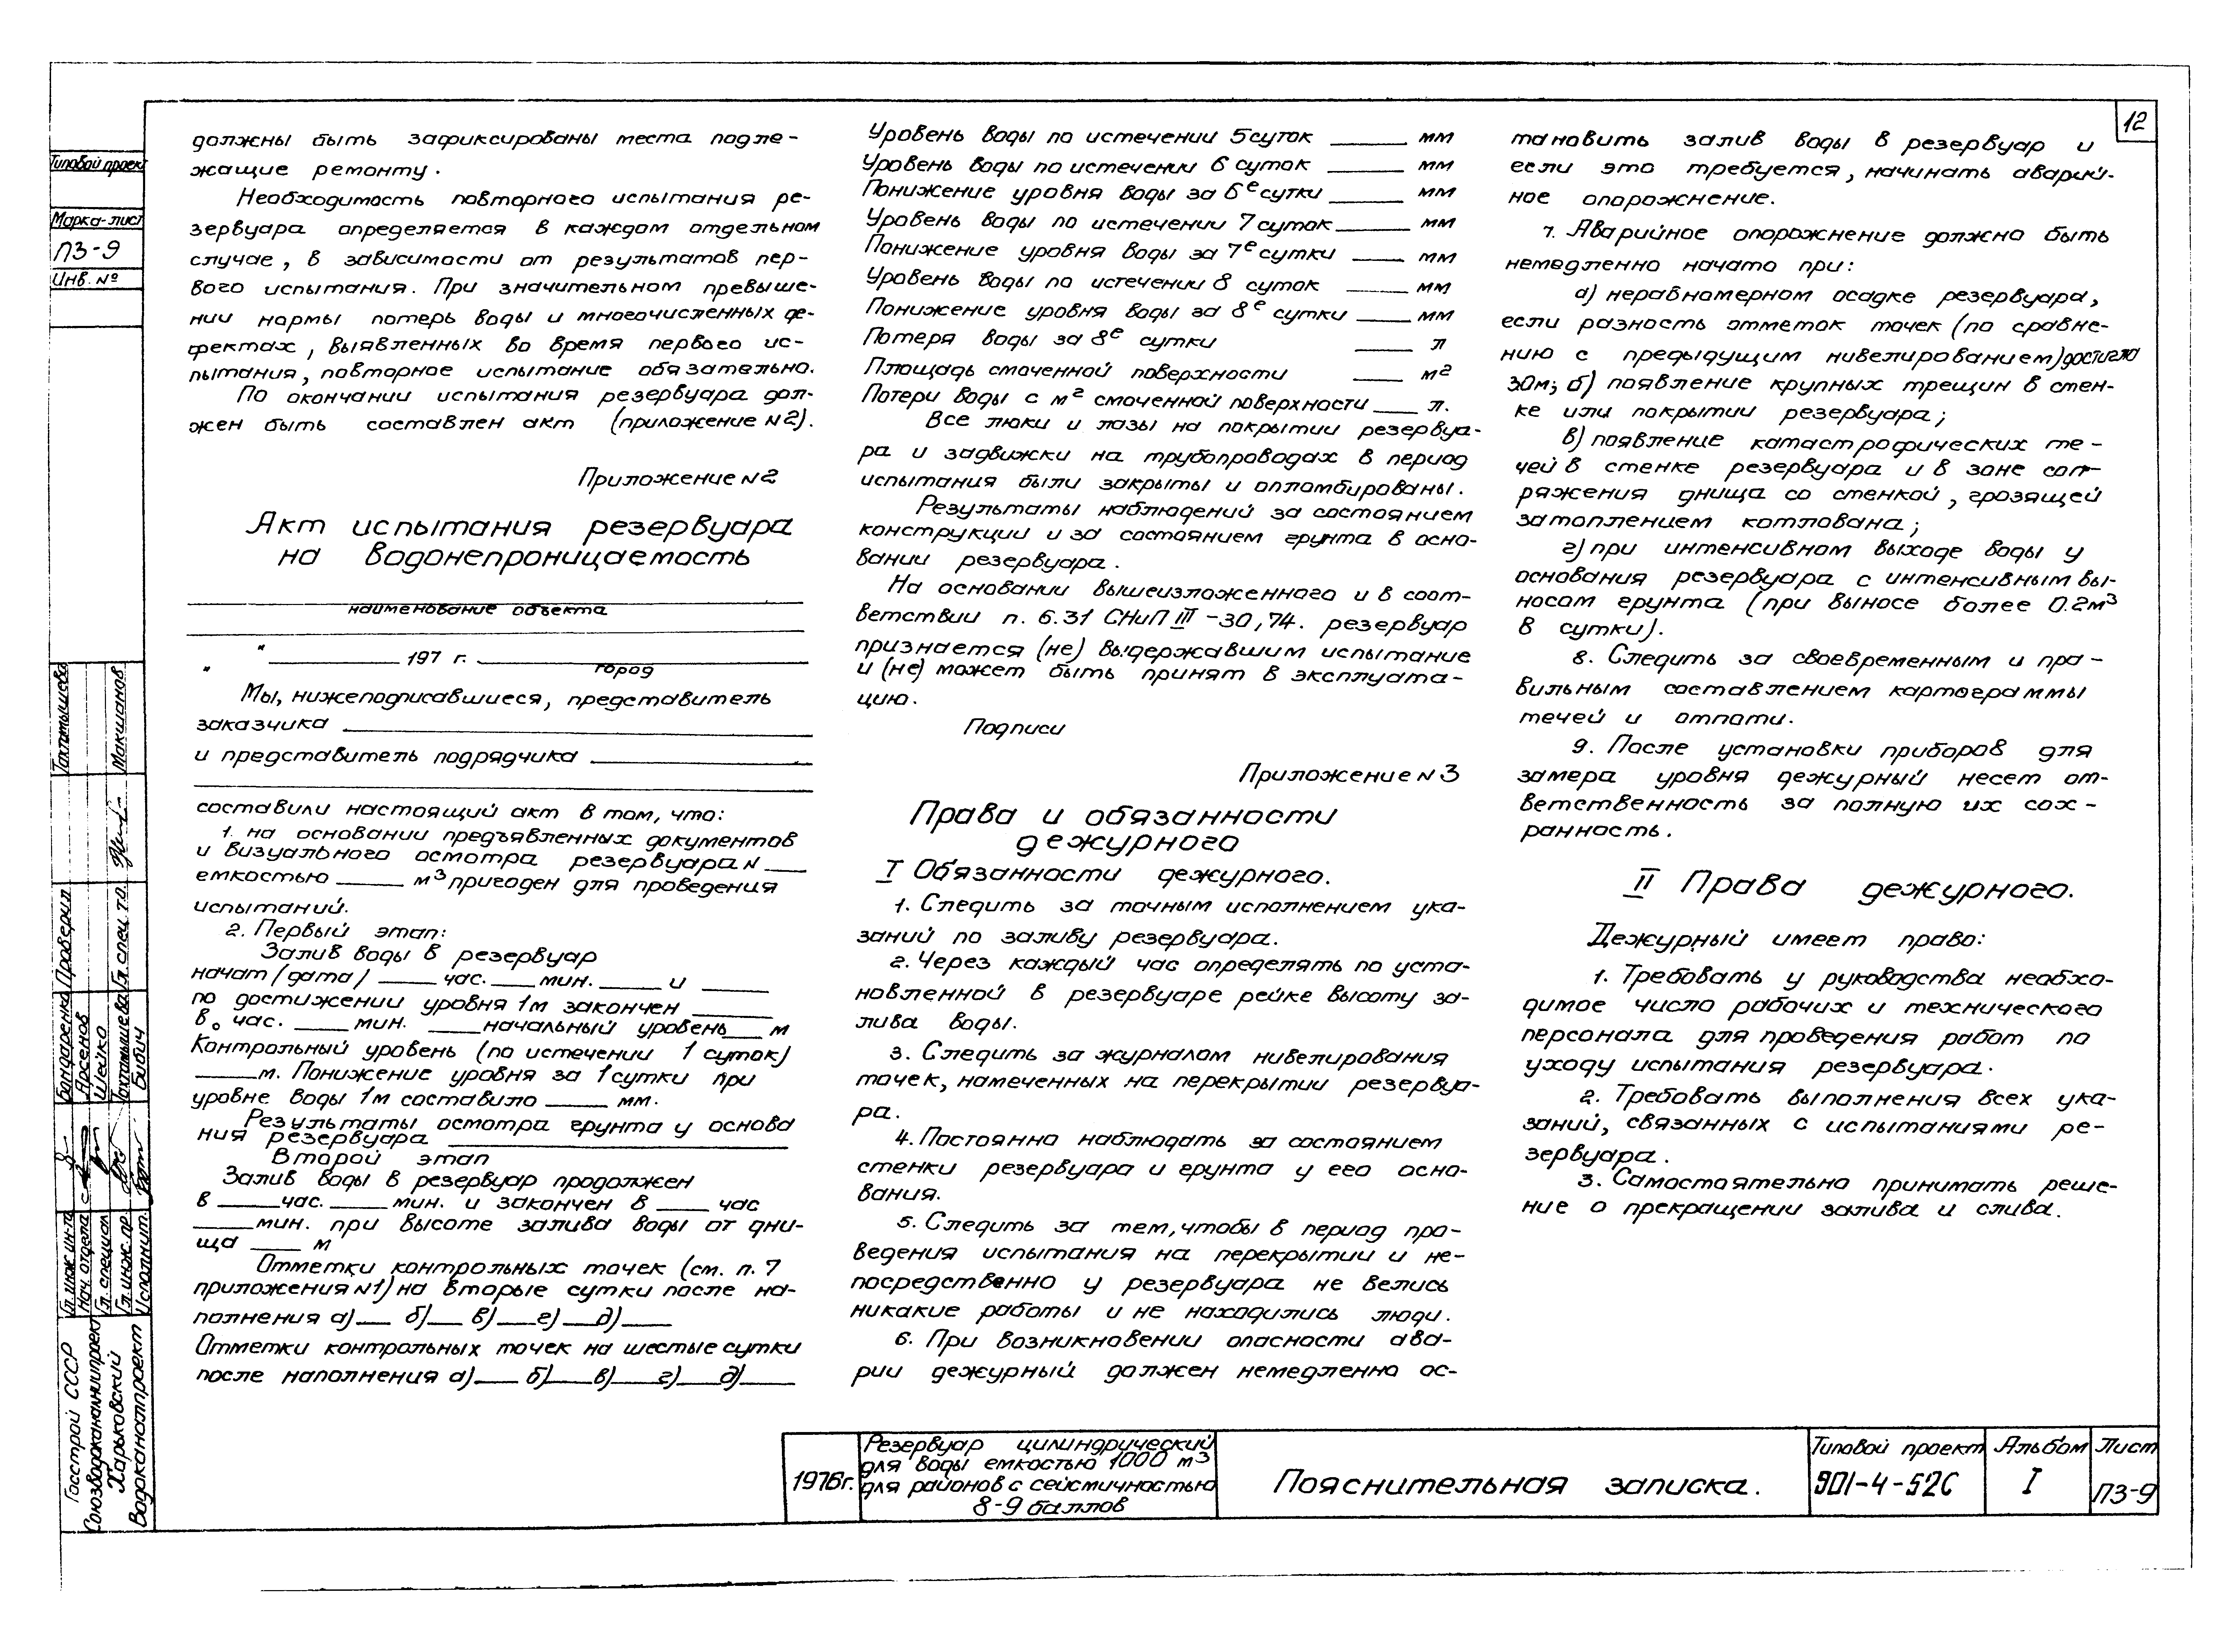 12
должны быть зафиксированы места подле-
жащие ремонту.
Необходимость повторного испытания ре-
зервуара определяется в каждом отдельном
случае, в зависимости от результатов пер-
вого испытания. При значительном превыше-
нии нормы потерь воды и многочисленных де-
фектах, выявленных во время первого ис-
пытания, повторное испытание обязательно.
По окончании испытания резервуара дол-
жен быть составлен акт (приложение N2).
Приложение N2
Акт испытания резервуара
на водонепроницаемость
наименование объекта
" " ______ 197 г. ______
город
Мы, нижеподписавшиеся, представитель
заказчика ______
и представитель подрядчика ______
составили настоящий акт в том, что:
1. на основании предъявленных документов
и визуального осмотра резервуара N ___
емкостью ____ м³ пригоден для проведения
испытаний.
2. Первый этап:
Залив воды в резервуар
начат (дата) ____ час. ____ мин. ____ и ____
по достижении уровня 1м закончен ____
в. час. ____ мин. ____ начальный уровень ____ м
Контрольный уровень (по истечении 1 суток)
____ м. Понижение уровня за 1 сутки при
уровне воды 1м составило ____ мм.
Результаты осмотра грунта у основа
ния резервуара ______
Второй этап
Залив воды в резервуар продолжен
в ____ час. ____ мин. и закончен в ____ час
____ мин. при высоте залива воды от дни-
ща ____ м
Отметки контрольных точек (см. п. 7
приложения N1) на вторые сутки после на-
полнения а)___ б)___ в)___ г)___ д)___
Отметки контрольных точек на шестые сутки
после наполнения а)___ б)___ в)___ г)___ д)___
Уровень воды по истечении 5 суток ____ мм
Уровень воды по истечении 6 суток ____ мм
Понижение уровня воды за 6е сутки ____ мм
Уровень воды по истечении 7 суток ____ мм
Понижение уровня воды за 7е сутки ____ мм
Уровень воды по истечении 8 суток ____ мм
Понижение уровня воды за 8е сутки ____ мм
Потеря воды за 8е сутки ____ л
Площадь смоченной поверхности ____ м²
Потери воды с м² смоченной поверхности ____ л.
Все люки и лазы на покрытии резервуа-
ра и задвижки на трубопроводах в период
испытания были закрыты и опломбированы.
Результаты наблюдений за состоянием
конструкции и за состоянием грунта в осно-
вании резервуара.
На основании вышеизложенного и в соот-
ветствии п. 6.31 СНиП III-30,74. резервуар
признается (не) выдержавшим испытание
и (не) может быть принят в эксплуата-
цию.
Подписи
Приложение N3
Права и обязанности
дежурного
I Обязанности дежурного.
1. Следить за точным исполнением ука-
заний по заливу резервуара.
2. Через каждый час определять по уста-
новленной в резервуаре рейке высоту за-
лива воды.
3. Следить за журналом нивелирования
точек, намеченных на перекрытии резервуа-
ра.
4. Постоянно наблюдать за состоянием
стенки резервуара и грунта у его осно-
вания.
5. Следить за тем, чтобы в период про-
ведения испытания на перекрытии и не-
посредственно у резервуара не велись
никакие работы и не находились люди.
6. При возникновении опасности ава-
рии дежурный должен немедленно ос-
тановить залив воды в резервуар и
если это требуется, начинать аварий-
ное опорожнение.
7. Аварийное опорожнение должно быть
немедленно начато при:
а) неравномерном осадке резервуара,
если разность отметок точек (по сравне-
нию с предыдущим нивелированием) достигла
30м; б) появление крупных трещин в стен-
ке или покрытии резервуара;
в) появление катастрофических те-
чей в стенке резервуара и в зоне соп-
ряжения днища со стенкой, грозящей
затоплением котлована;
г) при интенсивном выходе воды у
основания резервуара с интенсивным вы-
носом грунта (при выносе более 0.2м³
в сутки).
8. Следить за своевременным и пра-
вильным составлением картограммы
течей и отпоти.
9. После установки приборов для
замера уровня дежурный несет от-
ветственность за полную их сох-
ранность.
II Права дежурного.
Дежурный имеет право:
1. Требовать у руководства необхо-
димое число рабочих и технического
персонала для проведения работ по
уходу испытания резервуара.
2. Требовать выполнения всех ука-
заний, связанных с испытаниями ре-
зервуара.
3. Самостоятельно принимать реше-
ние о прекращении залива и слива.
Типовой проект
Марка-лист
ПЗ-9
Инв. №
Тохтамышева
Макшанов
Проверил
Гл. спец. т.о.
Бондаренко
Арсенов
Шейко
Тохтамышева
Бибич
Гл. инж. ин-та
Нач. отдела
Гл. специал
Гл. инж. пр.
Исполнит.
Госстрой СССР
Союзводоканалниипроект
Харьковский
Водоканалпроект
1976г.
Резервуар цилиндрический
для воды емкостью 1000 м³
для районов с сейсмичностью
8-9 баллов
Пояснительная записка.
Типовой проект
901-4-52С
Альбом
I
Лист
ПЗ-9